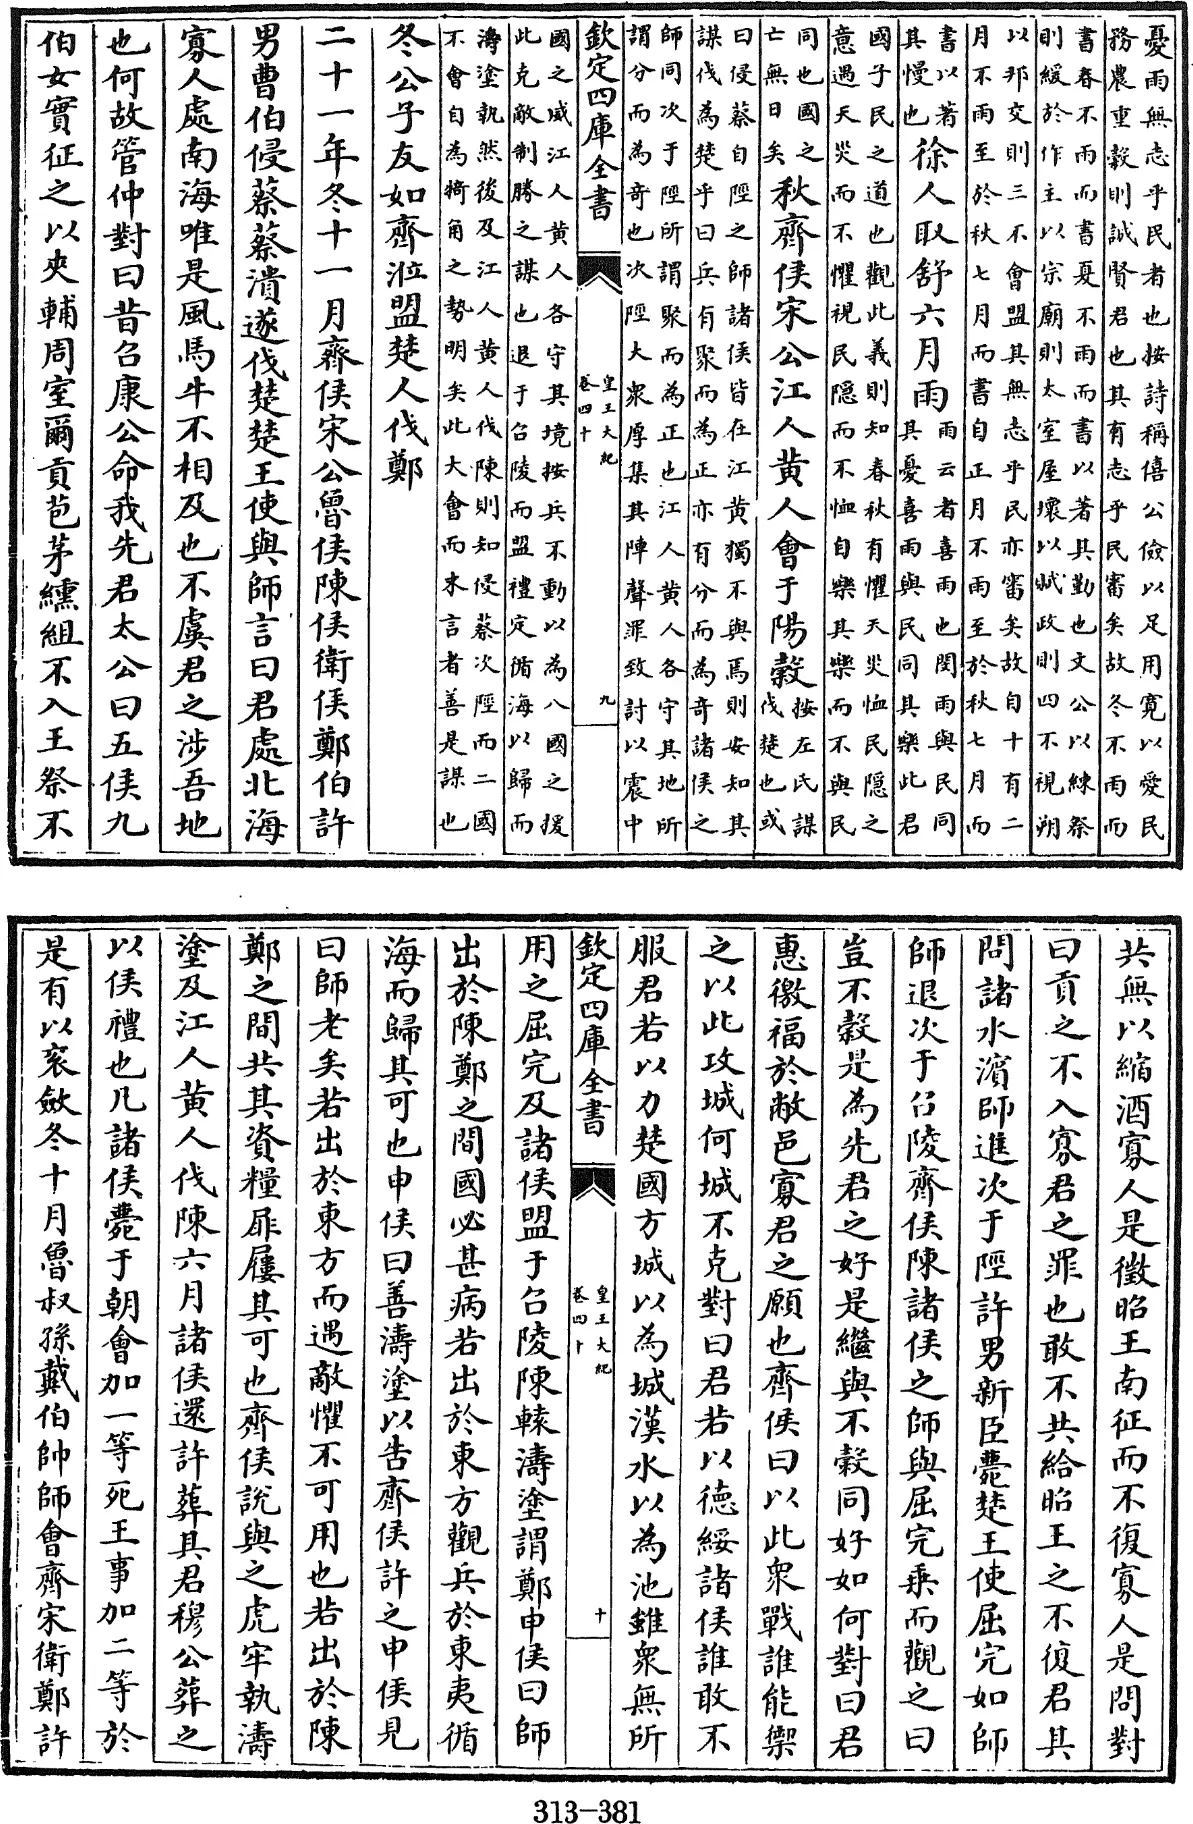 憂雨無志乎民者也按詩稱僖公儉以足用寛以愛民
務農重穀則誠賢君也其有志乎民審矣故冬不雨而
書春不雨而書夏不雨而書以著其勤也文公以練祭
則緩於作主以宗廟則太室屋壞以賦政則四不視朔
以邦交則三不會盟其無志乎民亦審矣故自十有二
月不雨至於秋七月而書自正月不雨至於秋七月而
書以著
其慢也
徐人取舒六月雨
雨云者喜雨也閔雨與民同
其憂喜雨與民同其樂此君
國子民之道也觀此義則知春秋有懼天災恤民隱之
意遇天災而不懼視民隱而不恤自樂其樂而不與民
同也國之
亡無日矣
秋齊侯宋公江人黄人會于陽榖
按左氏謀
伐楚也或
曰侵蔡自陘之師諸侯皆在江黄獨不與焉則安知其
謀伐為楚乎曰兵有聚而為正亦有分而為奇諸侯之
師同次于陘所謂聚而為正也江人黄人各守其地所
謂分而為奇也次陘大衆厚集其陣聲罪致討以震中
欽定四庫全書
皇王大紀
卷四十
九
國之威江人黄人各守其境按兵不動以為八國之援
此克敵制勝之謀也退于召陵而盟禮定循海以歸而
濤塗執然後及江人黄人伐陳則知侵蔡次陘而二國
不會自為犄角之勢明矣此大會而末言者善是謀也
冬公子友如齊涖盟楚人伐鄭
二十一年冬十一月齊侯宋公魯侯陳侯衛侯鄭伯許
男曹伯侵蔡蔡潰遂伐楚楚王使與師言曰君處北海
寡人處南海唯是風馬牛不相及也不虞君之涉吾地
也何故管仲對曰昔召康公命我先君太公曰五侯九
伯女實征之以夾輔周室爾貢苞茅纁組不入王祭不
共無以縮酒寡人是徵昭王南征而不復寡人是問對
曰貢之不入寡君之罪也敢不共給昭王之不復君其
問諸水濱師進次于陘許男新臣薨楚王使屈完如師
師退次于召陵齊侯陳諸侯之師與屈完乗而觀之曰
豈不穀是為先君之好是繼與不穀同好如何對曰君
惠徼福於敝邑寡君之願也齊侯曰以此衆戰誰能禦
之以此攻城何城不克對曰君若以德綏諸侯誰敢不
服君若以力楚國方城以為城漢水以為池雖衆無所
欽定四庫全書
皇王大紀
卷四十
十
用之屈完及諸侯盟于召陵陳轅濤塗謂鄭申侯曰師
出於陳鄭之間國必甚病若出於東方觀兵於東夷循
海而歸其可也申侯曰善濤塗以告齊侯許之申侯見
曰師老矣若出於東方而遇敵懼不可用也若出於陳
鄭之間共其資糧屝屨其可也齊侯說與之虎牢執濤
塗及江人黄人伐陳六月諸侯還許葬其君穆公葬之
以侯禮也凡諸侯薨于朝會加一等死王事加二等於
是有以衮斂冬十月魯叔孫戴伯帥師會齊宋衛鄭許
313-381